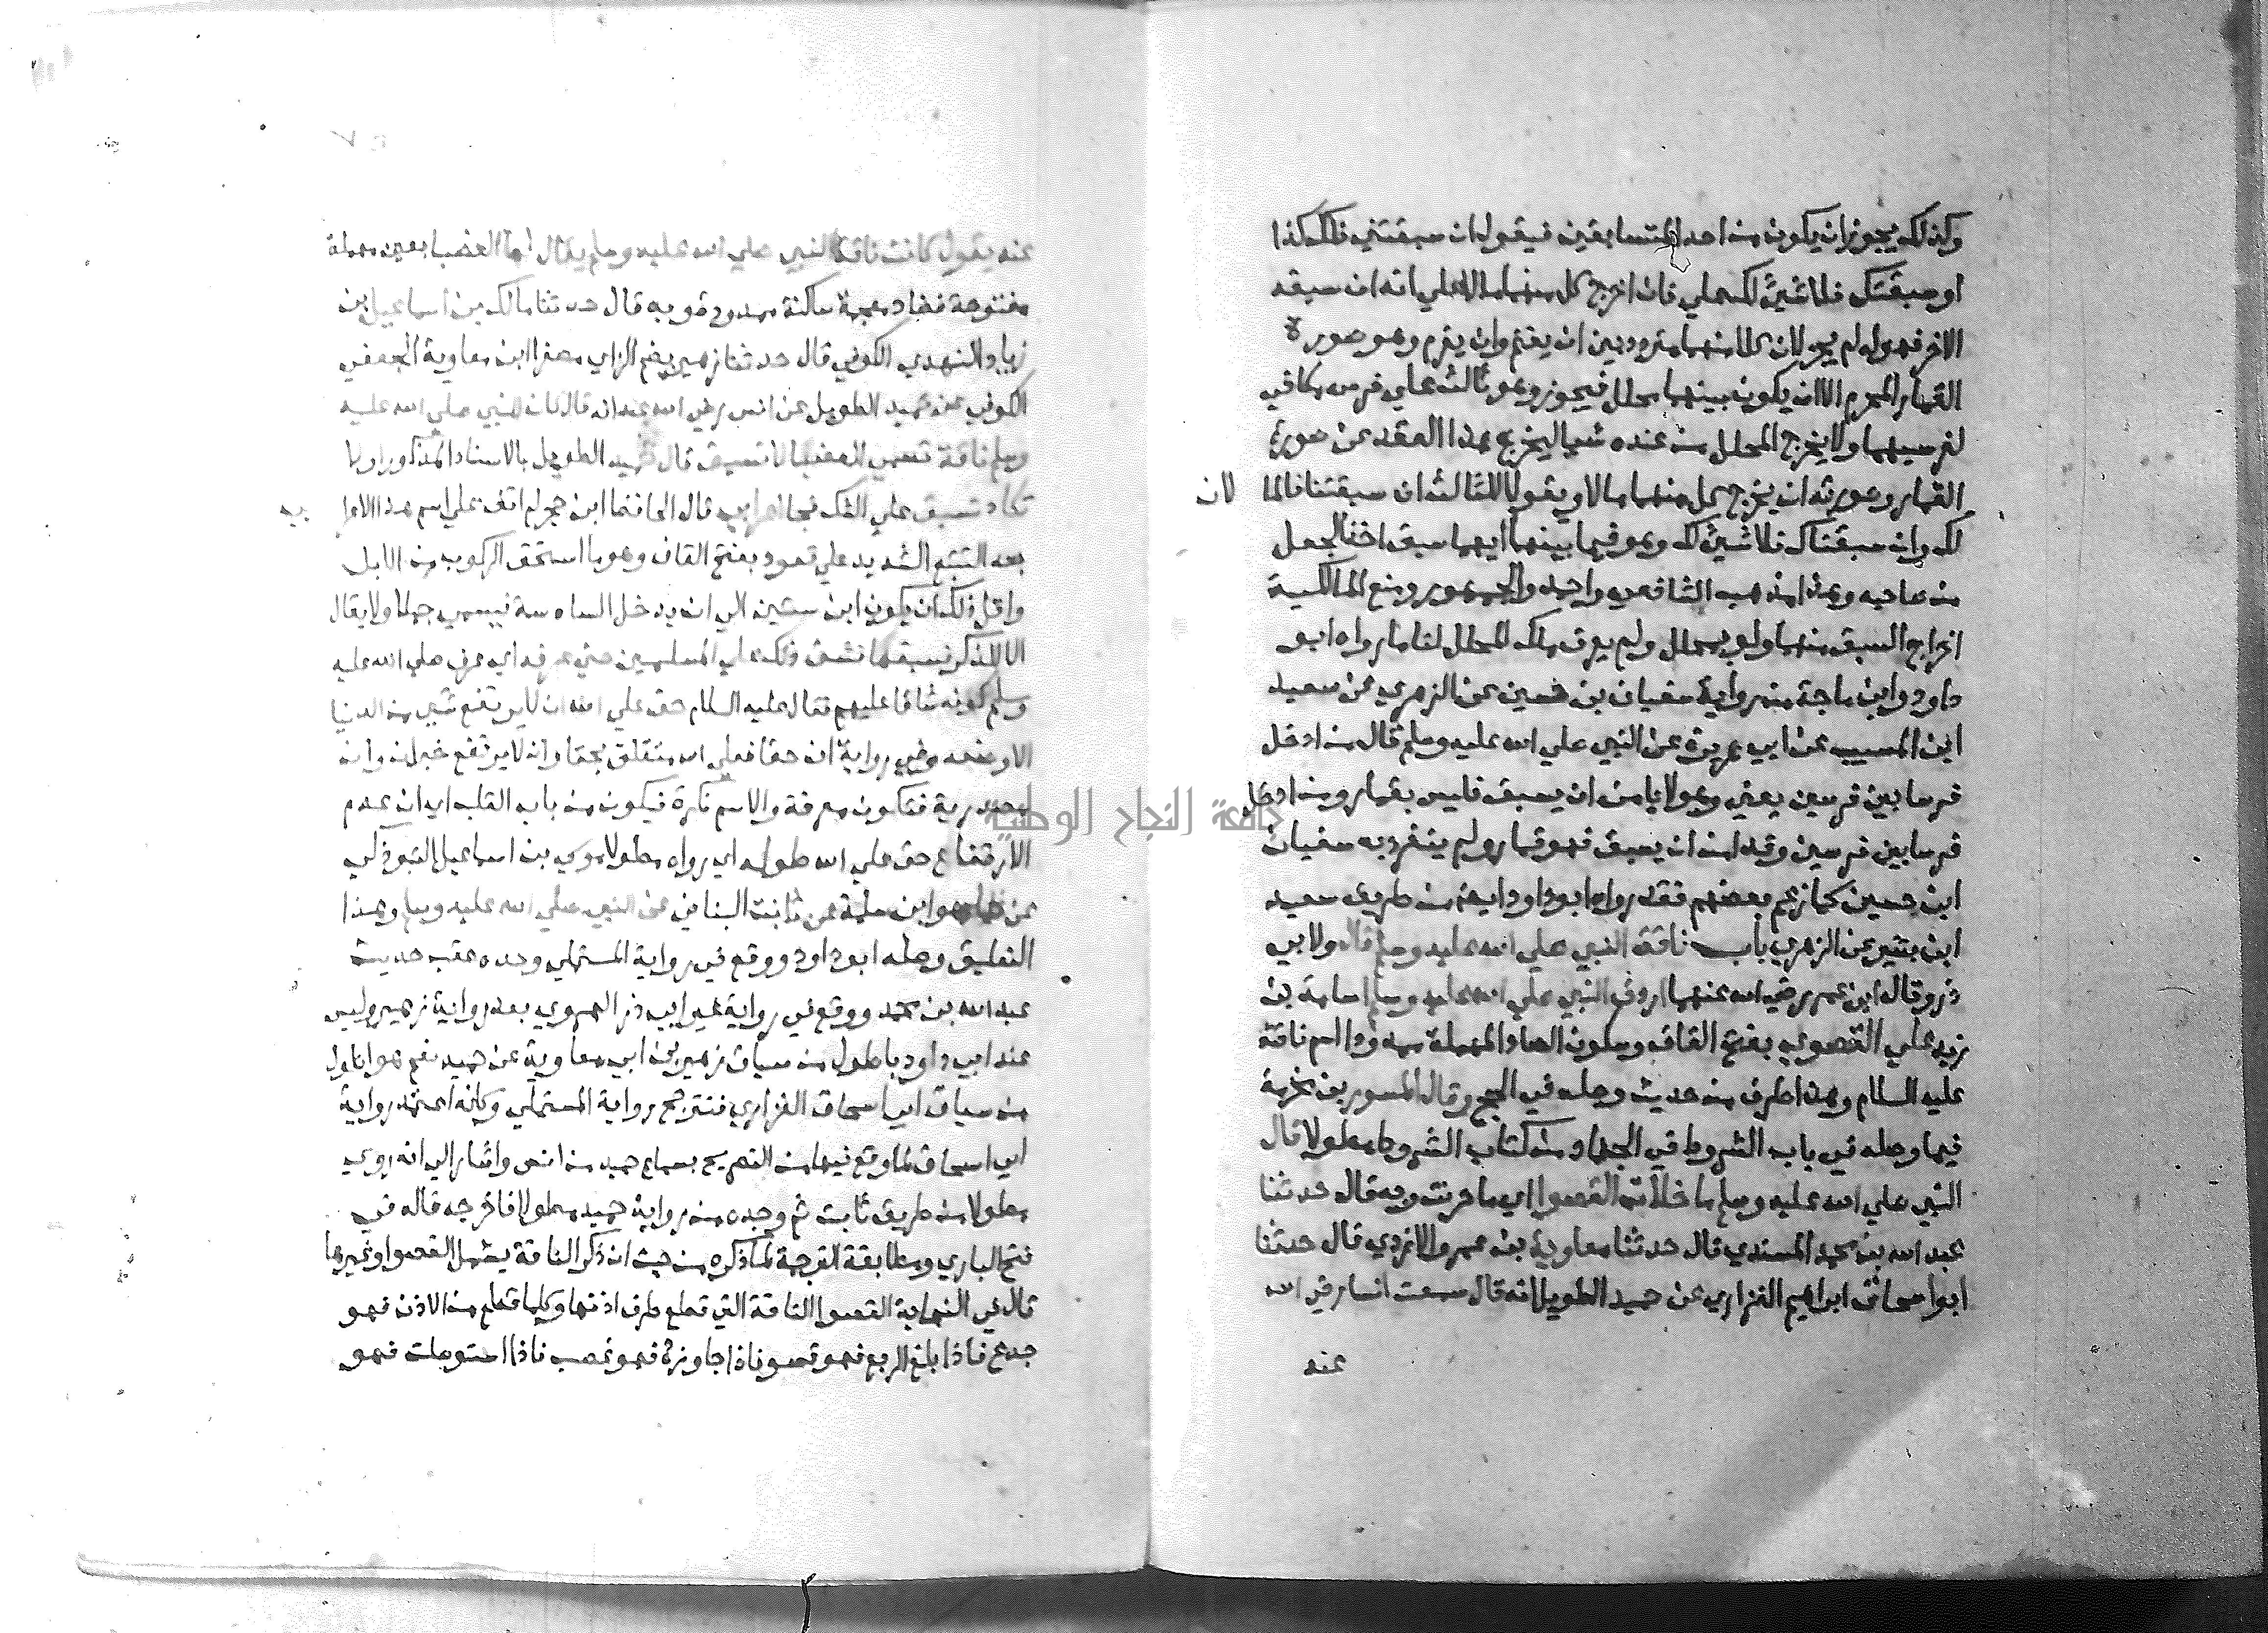 وكذلك يجوز ان يكون من احد المتسابقين فيقول ان سبقتني فلك كذا
او سبقتك فلا شيئ لك علي فان اخرج كل منهما مالا علي انه ان سبقه
الاخر فهو له لم يجز لان كلا منهما متردد بين ان يغنم وان يغرم وهو صورة
القمار المحرم الا ان يكون بينهما محلل فيجوز وهو ثالث علي فرس مكافي
لفرسيهما ولا يخرج المحلل من عنده شيا ليخرج هذا العقد عن صورة
القمار وصورته ان يخرج كل منهما مالا ويقولا للثالث ان سبقتنا فالمالان
لك وان سبقناك فلا شيئ لك وهو فيما بينهما ايهما سبق اخذ الجعل
من صاحبه وهذا مذهب الشافعي واحمد والجمهور ومنع المالكية
اخراج السبق منهما ولو بمحلل ولم يعرف مالك المحلل لنا ما رواه ابو
داود وابن ماجة من رواية سفيان بن حسين عن الزهري عن سعيد
ابن المسيب عن ابي هريرة عن النبي صلي الله عليه وسلم قال من ادخل
فرسا بين فرسين يعني وهو لا يامن ان يسبق فليس بقمار ومن ادخل
فرسا بين فرسين وقد امن ان يسبق فهو قمار ولم ينفرد به سفيان
ابن حسين كما زعم بعضهم فقد رواه ابو داود ايضا من طريق سعيد
ابن بشير عن الزهري باب ناقة النبي صلي الله عليه وسلم قال ولابي
ذر وقال ابن عمر رضي الله عنهما اردف النبي صلي الله عليه وسلم اسامة بن
زيد علي القصوي بفتح القاف وسكون الصاد المهملة ممدودا اسم ناقته
عليه السلام وهذا طرف من حديث وصله في الحج وقال المسور بن مخرمة
فيما وصله في باب الشروط في الجهاد من كتاب الشروط مطولا قال
النبي صلي الله عليه وسلم ما خلأت القصوا اي ما حرنت وبه قال حدثنا
عبد الله بن محمد المسندي قال حدثنا معاوية بن عمرو الازدي قال حدثنا
ابو اسحاق ابراهيم الفزاري عن حميد الطويل انه قال سمعت انسا رضي الله
عنه
عنه يقول كانت ناقة النبي صلي الله عليه وسلم يقال لها العضبا بعين مهملة
مفتوحة فضاد معجمة ساكنة ممدودة وبه قال حدثنا مالك بن اسماعيل بن
زياد النهدي الكوفي قال حدثنا زهير بضم الزاي مصغرا ابن معاوية الجعفي
الكوفي عن حميد الطويل عن انس رضي الله عنه انه قال كان للنبي صلي الله عليه
وسلم ناقة تسمي العضبا لا تسبق قال حميد الطويل بالاسناد المذكور او لا
تكاد تسبق علي الشك فجا اعرابي قال الحافظ ابن حجر لم اقف علي اسم هذا الاعرابي
بعد التتبع الشديد علي قعود بفتح القاف وهو ما استحق الركوب من الابل
واقل ذلك ان يكون ابن سنتين الي ان يدخل السادسة فيسمي جملا ولا يقال
الا للذكر فسبقها فشق ذلك علي المسلمين حتي عرفه اي عرف صلي الله عليه
وسلم كونه شاقا عليهم فقال عليه السلام حق علي الله ان لا يرتفع شي من الدنيا
الا وضعه وفي رواية ان حقا فعلي الله متعلق بحقا وان لا يرتفع خبر ان وان
مصدرية فتكون معرفة والاسم نكرة فيكون من باب القلب اي ان عدم
الارتفاع حق علي الله طوله اي رواه مطولا موسي بن اسماعيل التبوذكي
عن حماد هو ابن سلمة عن ثابت البناني عن النبي صلي الله عليه وسلم وهذا
التعليق وصله ابو داود ووقع في رواية المستملي وحده عقب حديث
عبد الله بن محمد ووقع في رواية غير ابي ذر الهروي بعد رواية زهير وليس
عند ابي داود باطول من سياق زهير بن ابي معاوية عن حميد نعم هو اطول
من سياق ابي اسحاق الفزاري فتترجح رواية المستملي وكانه اعتمد رواية
ابي اسحاق لما وقع فيها من التصريح بسماع حميد من انس واشار الي انه روي
مطولا من طريق ثابت ثم وجده من رواية حميد مطولا فاخرجه قاله في
فتح الباري ومطابقة الترجمة لما ذكره من حيث ان ذكر الناقة يشمل القصوا وغيرها
قال في النهاية القصوا الناقة التي قطع طرف اذنها وكلما قطع من الاذن فهو
جدع فاذا بلغ الربع فهو قصو فاذا جاوزه فهو عضب فاذا استوصلت فهو
جامعة النجاح الوطنية